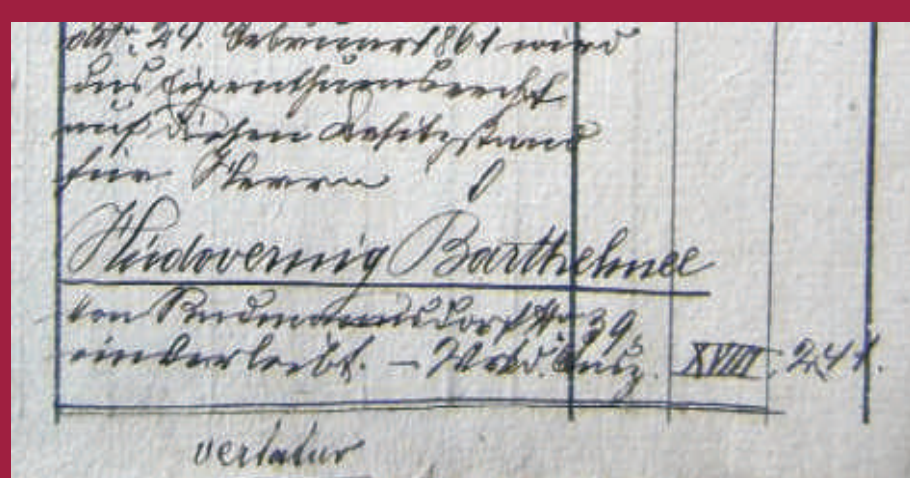 ddto. 24. Februar 1861 wird
das Eigenthumsrecht
auf diesen Besitzstand
für Herrn
Hudovernig Barthelmee
von Radmannsdorf No 39
einverleibt. – Urkd. Buch XVIII. 241.
vertatur